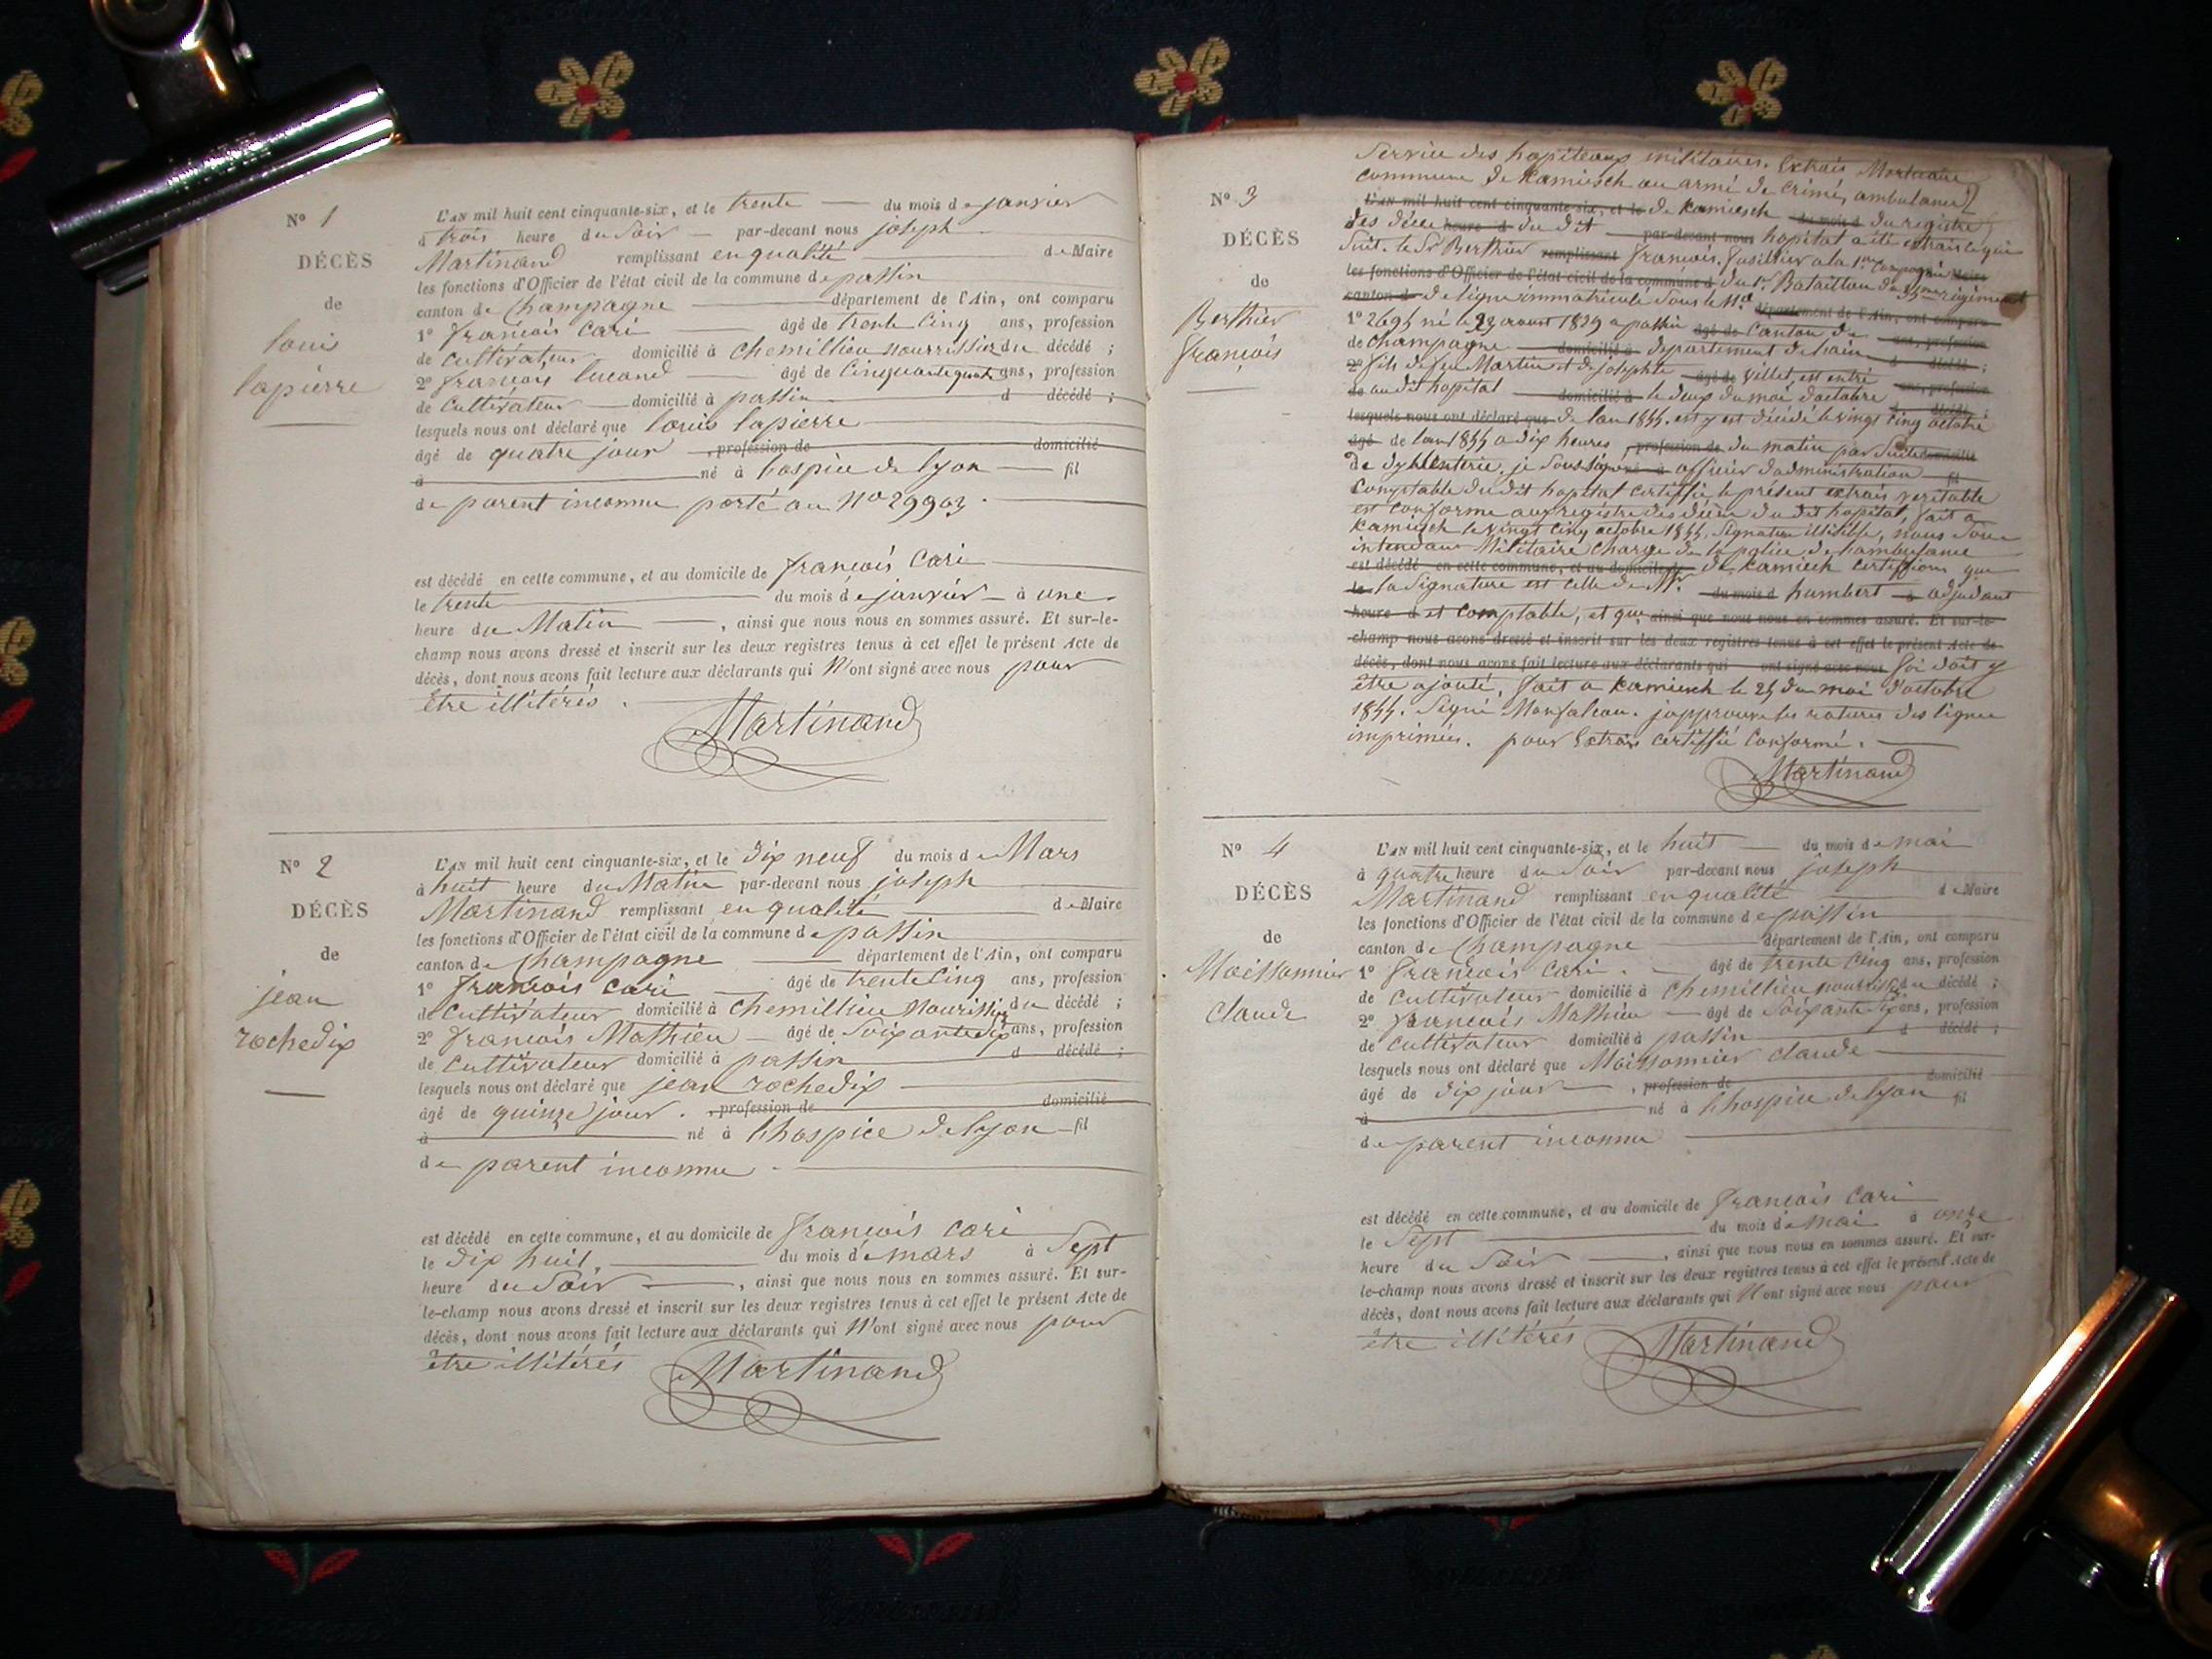 N° 1
DÉCÈS
de
louis
lapierre
L'AN mil huit cent cinquante-six, et le trente du mois de janvier
à trois heure du Soir par-devant nous joseph
Martinand remplissant en qualité de Maire
les fonctions d'Officier de l'état civil de la commune de passin
canton de Champagne département de l'Ain, ont comparu
1° francois Cari âgé de trente Cinq ans, profession
de Cultivateur domicilié à chemillieu nourrissier du décédé ;
2° francois lucand âgé de Cinquante quatre ans, profession
de Cultivateur domicilié à passin d décédé ;
lesquels nous ont déclaré que louis lapierre
âgé de quatre jour , profession de domicilié
à né à hospice de lyon fil
de parent inconnu porté au N° 29903.
est décédé en cette commune, et au domicile de francois Cari
le trente du mois de janvier à une
heure du Matin , ainsi que nous nous en sommes assuré. Et sur-le-
champ nous avons dressé et inscrit sur les deux registres tenus à cet effet le présent Acte de
décès, dont nous avons fait lecture aux déclarants qui N'ont signé avec nous pour
être illitérés.
Martinand
N° 2
DÉCÈS
de
jean
rochedix
L'AN mil huit cent cinquante-six, et le dix neuf du mois de Mars
à huit heure du Matin par-devant nous joseph
Martinand remplissant en qualité de Maire
les fonctions d'Officier de l'état civil de la commune de passin
canton de Champagne département de l'Ain, ont comparu
1° francois Cari âgé de trente Cinq ans, profession
de Cultivateur domicilié à chemillieu Nourissier du décédé ;
2° francois Mathieu âgé de Soixante dix ans, profession
de Cultivateur domicilié à passin d décédé ;
lesquels nous ont déclaré que jean rochedix
âgé de quinze jour. , profession de domicilié
à né à lhospice de lyon fil
de parent inconnu.
est décédé en cette commune, et au domicile de francois Cari
le dix huit, du mois de mars à Sept
heure du Soir , ainsi que nous nous en sommes assuré. Et sur-
le-champ nous avons dressé et inscrit sur les deux registres tenus à cet effet le présent Acte de
décès, dont nous avons fait lecture aux déclarants qui N'ont signé avec nous pour
être illitérés
Martinand
N° 3
DÉCÈS
de
Berthier
francois
Service des hopiteaux militaires. Extrais Mortuaire
commune de Kamiesch au armé de crimé, ambulance
L'AN mil huit cent cinquante-six, et le de Kamiesch du mois d du registre
des décé heure d du dit par-devant nous hopital a été extrais ce qui
Suit. le Sr Berthier remplissant francois. fusillier a la 1re Compagnie Maire
les fonctions d'Officier de l'état civil de la commune d du 1r Bataillon du régiment
canton d de ligne immatriculé sous le N° département de l'Ain, ont comparu
1° né le 22 aout a passin âgé de Canton de ans, profession
de champagne domicilié à département de lain d décédé ;
2° fils de feu Martin et de josephte âgé de Villet, est entré ans, profession
de au dit hopital domicilié à le deux du moi doctobre d décédé ;
lesquels nous ont déclaré que de lan 1855. est y est décédé le vingt Cinq octobre
âgé de lan 1855 a dix heures , profession de du matin par Suite domicilié
de dyssenterie. je Soussigné né à officier dadministration fil
Comptable du dit hopital certiffie le présent extrais veritable
est conforme aux registre des décé du dit hopital, fait a
Kamiesch le vingt Cinq octobre 1855. Signature illisible, nous Sous
intendant Militaire chargé de la police de lambulance
est décédé en cette commune, et au domicile de de Kamiesch certiffions que
le la Signature est celle de Mr du mois d humbert à adjudant
heure d et Comptable, et que, ainsi que nous nous en sommes assuré. Et sur-le-
champ nous avons dressé et inscrit sur les deux registres tenus à cet effet le présent Acte de
décès, dont nous avons fait lecture aux déclarants qui ont signé avec nous foi doit y
être ajouté, fait a Kamiesch le 25 du moi d'octobre
1855. Signé japprouve les ratures des lignes
imprimées. pour Extrais certiffié Conforme.
Martinand
N° 4
DÉCÈS
de
Moissonnier
claude
L'AN mil huit cent cinquante-six, et le huit du mois de mai
à quatre heure du Soir par-devant nous joseph
Martinand remplissant en qualité de Maire
les fonctions d'Officier de l'état civil de la commune de passin
canton de Champagne département de l'Ain, ont comparu
1° francois Cari. âgé de trente Cinq ans, profession
de Cultivateur domicilié à Chemillieu nourissier du décédé ;
2° francois Mathieu âgé de Soixante dix ans, profession
de Cultivateur domicilié à passin d décédé ;
lesquels nous ont déclaré que Moissonnier claude
âgé de dix jour , profession de domicilié
à né à lhospice de lyon fil
de parent inconnu
est décédé en cette commune, et au domicile de francois Cari
le Sept du mois de mai à onze
heure du Soir , ainsi que nous nous en sommes assuré. Et sur-
le-champ nous avons dressé et inscrit sur les deux registres tenus à cet effet le présent Acte de
décès, dont nous avons fait lecture aux déclarants qui N'ont signé avec nous pour
être illitérés
Martinand